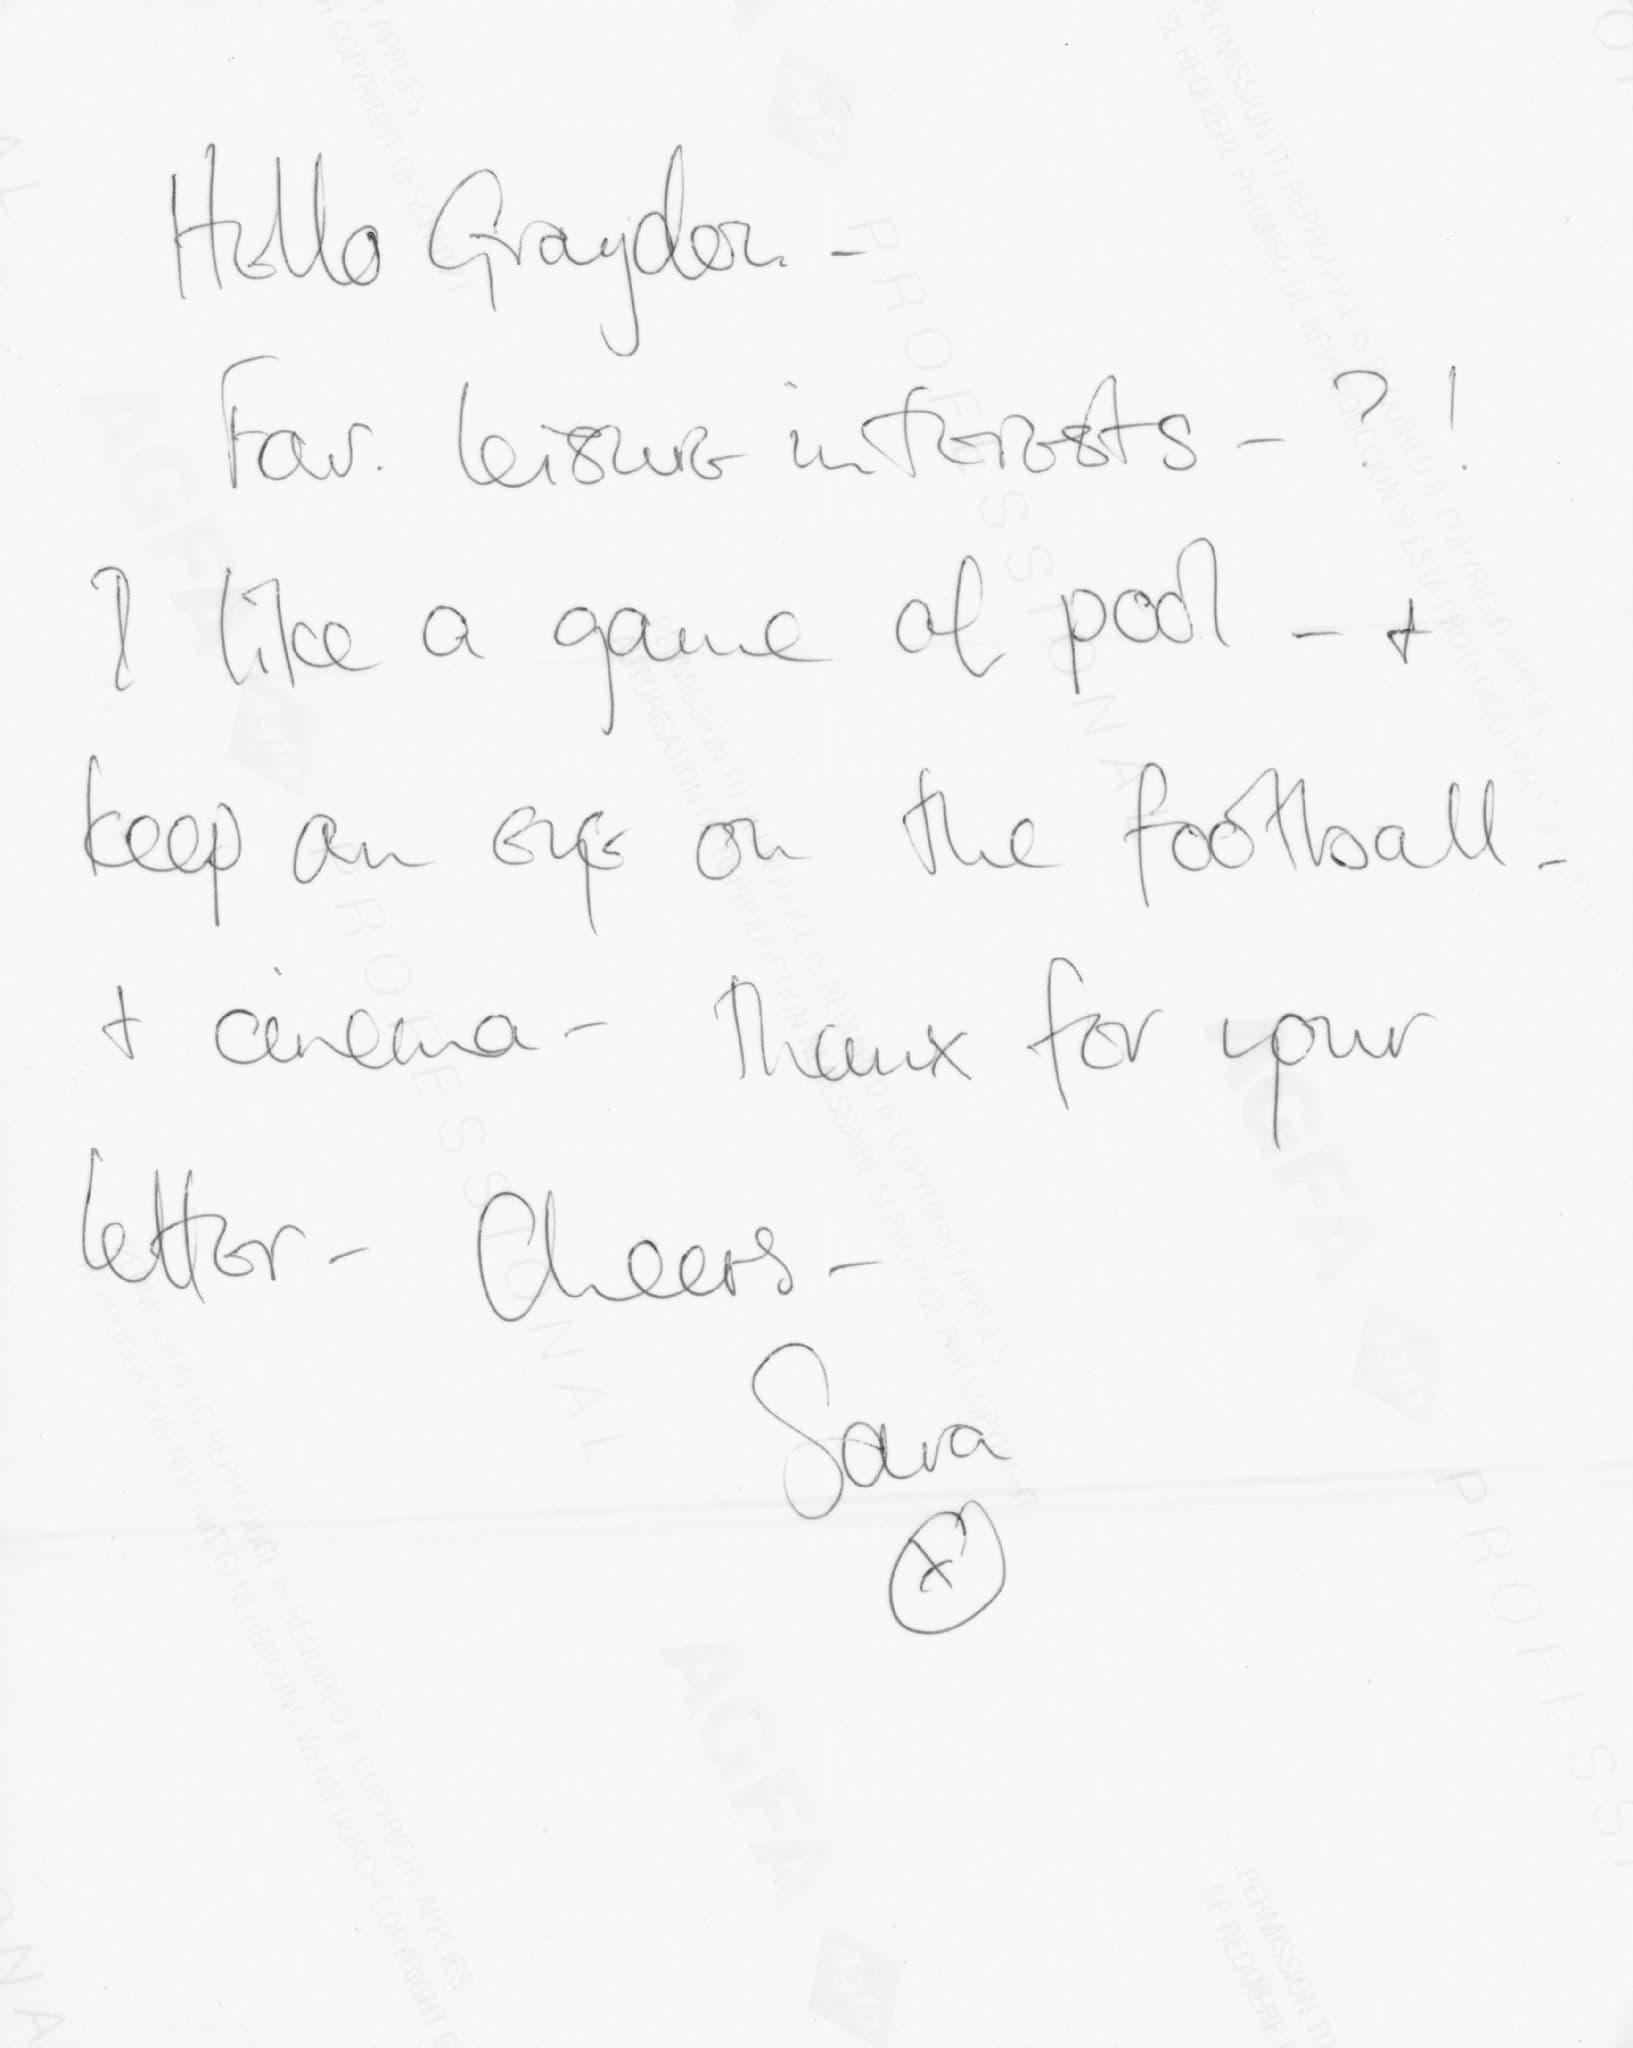 Hello Graydon -
Fav. leisure interests - ?!
I like a game of pool - +
keep an eye on the football -
+ cinema - Thanx for your
letter - Cheers -
Sara
x